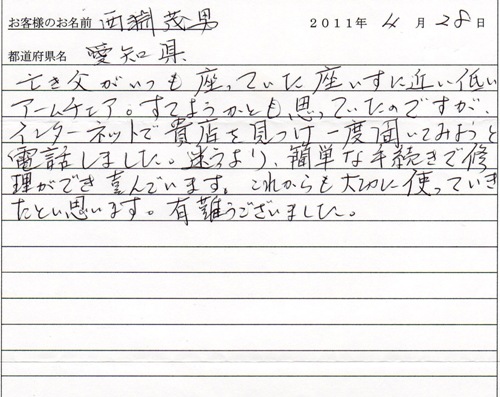 お客様のお名前 西淵 茂男 2011年 4月 28日
都道府県名 愛知県
亡き父がいつも座っていた座いすに近い低い
アームチェア。すてようかとも思っていたのですが、
インターネットで貴店を見つけ一度聞いてみようと
電話しました。迷うより、簡単な手続きで修
理ができ喜んでいます。これからも大切に使っていき
たいと思います。有難うございました。